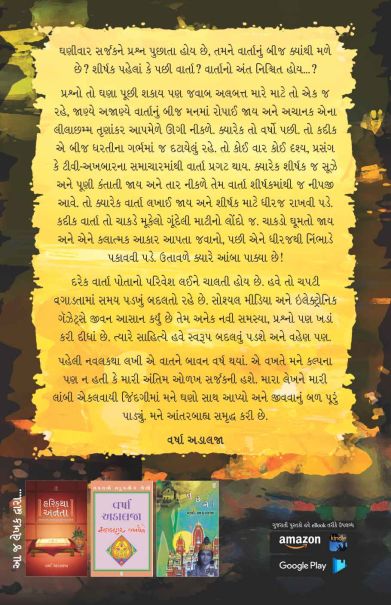 ઘણીવાર સર્જકને પ્રશ્ન પુછાતા હોય છે, તમને વાર્તાનું બીજ ક્યાંથી મળે
છે? શીર્ષક પહેલાં કે પછી વાર્તા? વાર્તાનો અંત નિશ્ચિત હોય...?
પ્રશ્નો તો ઘણા પૂછી શકાય પણ જવાબ અલબત્ત મારે માટે તો એક જ
રહે, જાણ્યે અજાણ્યે વાર્તાનું બીજ મનમાં રોપાઈ જાય અને અચાનક એના
લીલાછમ્મ તૃણાંકર આપમેળે ઊગી નીકળે. ક્યારેક તો વર્ષો પછી. તો કદીક
એ બીજ ધરતીના ગર્ભમાં જ દટાયેલું રહે. તો કોઈ વાર કોઈ દૃશ્ય, પ્રસંગ
કે ટીવી-અખબારના સમાચારમાંથી વાર્તા પ્રગટ થાય. ક્યારેક શીર્ષક જ સૂઝે
અને પૂણી કંતાતી જાય અને તાર નીકળે તેમ વાર્તા શીર્ષકમાંથી જ નીપજી
આવે. તો ક્યારેક વાર્તા લખાઈ જાય અને શીર્ષક માટે ધીરજ રાખવી પડે.
કદીક વાર્તા તો ચાકડે મૂકેલો ગૂંદેલી માટીનો લોંદો જ. ચાકડો ઘૂમતો જાય
અને એને કલાત્મક આકાર આપતા જવાનો, પછી એને ધીરજથી નિંભાડે
પકાવવી પડે. ઉતાવળે ક્યારે આંબા પાક્યા છે!
દરેક વાર્તા પોતાનો પરિવેશ લઈને ચાલતી હોય છે. હવે તો ચપટી
વગાડતામાં સમય પડખું બદલતો રહે છે. સોશ્યલ મીડિયા અને ઇલેક્ટ્રોનિક
ગેજેટ્સે જીવન આસાન કર્યું છે તેમ અનેક નવી સમસ્યા, પ્રશ્નો પણ ખડાં
કરી દીધાં છે. ત્યારે સાહિત્યે હવે સ્વરૂપ બદલવું પડશે અને વહેણ પણ.
પહેલી નવલકથા લખી એ વાતને બાવન વર્ષ થયાં. એ વખતે મને કલ્પના
પણ ન હતી કે મારી અંતિમ ઓળખ સર્જકની હશે. મારા લેખને મારી
લાંબી એકલવાયી જિંદગીમાં મને ઘણો સાથ આપ્યો અને જીવવાનું બળ પૂરું
પાડ્યું. મને આંતરબાહ્ય સમૃદ્ધ કરી છે.
વર્ષા અડાલજા
આ જ લેખક દ્વારા...
હરિકથા
અનંતા
વર્ષા
અડાલજા
ગુજરાતી પુસ્તકો હવે eBook તરીકે ઉપલબ્ધ
amazon kindle
Google Play